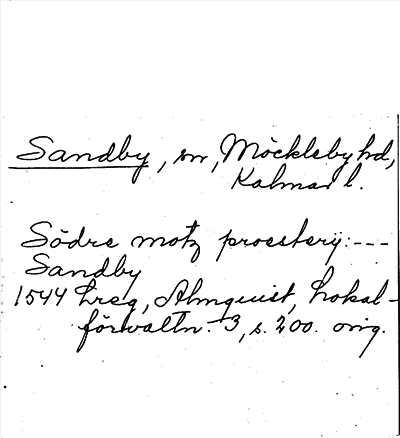 Sandby, sn, Möckleby hd,
Kalmar l.
Södre motz proesterij: ---
Sandby
1544 Lreg, Almquist, Lokal-
förvaltn. 3, s. 200. orig.